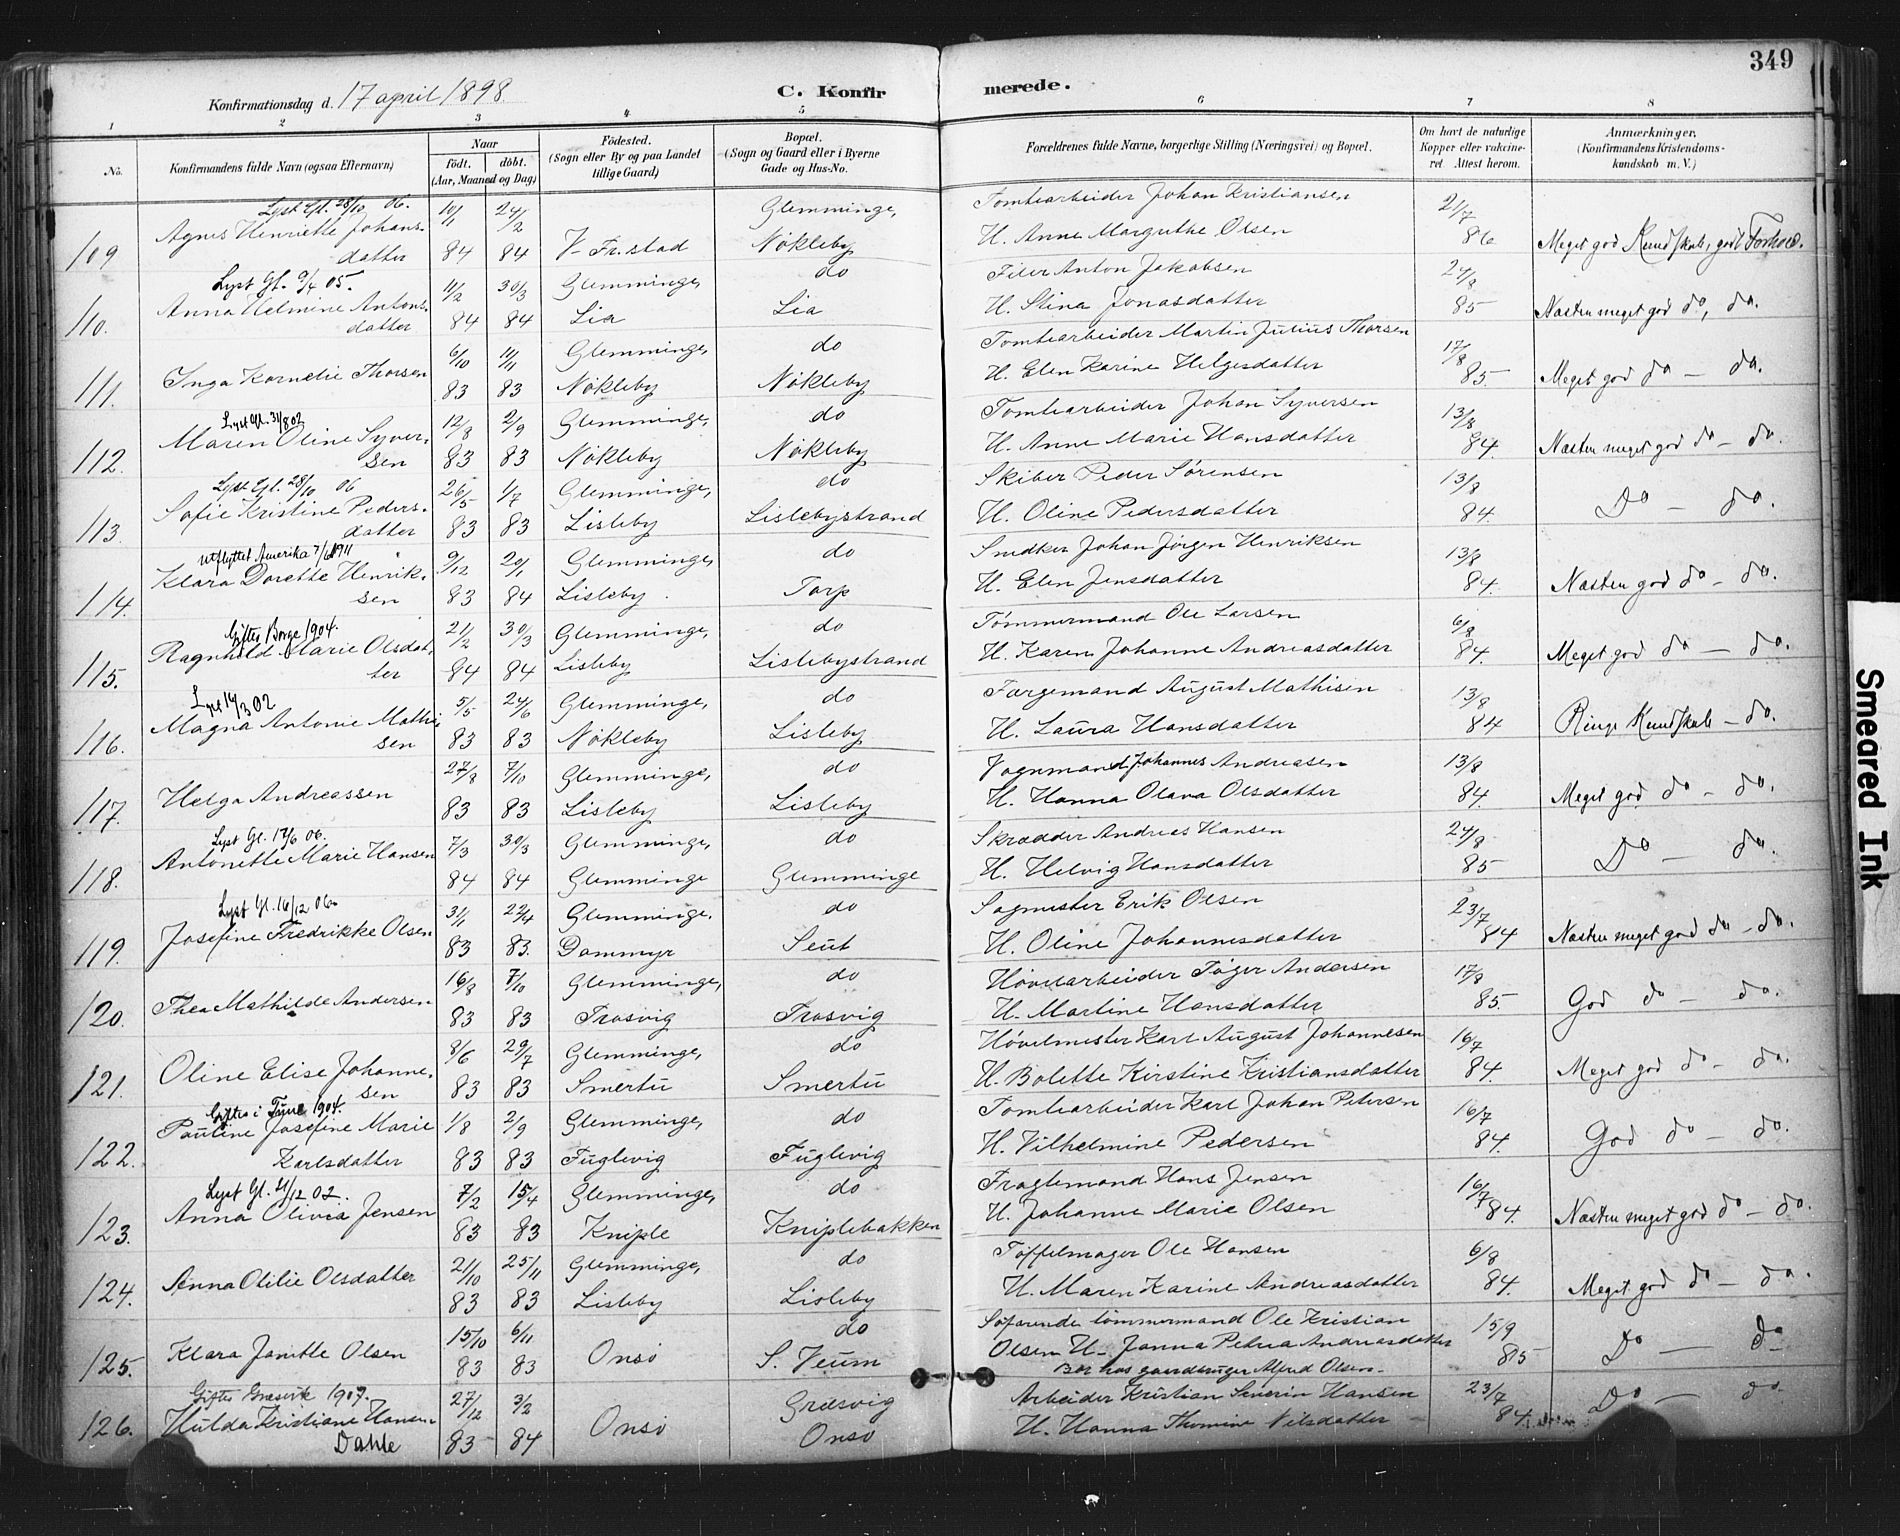 349
Konfirmationsdag d. 17 april 1898
C. Konfirmerede.
1 2 3 4 5 6 7 8
No. Konfirmandens fulde Navn (ogsaa Efternavn) Naar født. døbt. (Aar, Maaned og Dag) Fødested. (Sogn eller By og paa Landet tillige Gaard) Bopæl. (Sogn og Gaard eller i Byerne Gade og Hus-No. Forældrenes fulde Navne, borgerlige Stilling (Næringsvei) og Bopæl. Om havt de naturlige Kopper eller vaccineret. Attest herom. Anmærkninger. (Konfirmandens Kristendomskundskab m. V.)
Lyst Gl. 28/10 06. 10/1 24/2 Glemminge, Tomtearbeider Johan Kristiansen 21/7
109 Agnes Henriette Johansdatter 84 84 V. Fr.stad Nøkleby H. Anne Margrethe Olsen 86 Meget god Kundskab, godt Forhold.
Lyst Gl. 9/4 05. 11/2 30/3 Glemminge, do Filer Anton Jakobsen 24/8
110. Anna Helmine Antonsdatter 84 84 Lia Lia H. Stina Jonasdatter 85 Næsten meget god do, do.
6/10 11/11 Glemminge, do Tomtearbeider Martin Julius Thorsen 17/8
111. Inga Kornelie Thorsen 83 83 Nøkleby Nøkleby H. Elen Karine Helgesdatter 85. Meget god do — do.
Lyst Gl. 31/8 02 12/8 2/9 Glemminge, do Tomtearbeider Johan Syversen 13/8
112. Maren Oline Syversen 83 83 Nøkleby Nøkleby H. Anne Marie Hansdatter 84. Næsten meget god do — do.
Lyst Gl. 28/10 06 26/5 1/7 Glemminge, do Skiber Peder Sørensen 13/8
113. Sofie Kristine Pedersdatter 83 83 Lisleby Lislebystrand H. Oline Pedersdatter 84. Do — do.
utflyttet Amerika 7/6 1911 9/12 20/1 Glemminge, do Snedker Johan Jørgen Henriksen 13/8
114. Klara Dorette Henriksen 83 84 Lisleby. Torp H. Elen Jensdatter 84. Næsten god do — do.
Giftes Borge 1904. 21/2 30/3 Glemminge, do Tømmermand Ole Larsen 6/8
115. Ragnhild Marie Olsdatter 84 84 Lisleby Lislebystrand H. Karen Johanne Andreasdatter 84. Meget god do — do.
Lyst 14/3 02 5/5 24/6 Glemminge, do Fargemand August Mathisen 13/8
116. Magna Antonie Mathisen 83 83 Nøkleby Lisleby H. Laura Hansdatter 84 Ringe Kundskab — do.
27/8 7/10 Glemminge, do Vognmand Johannes Andreasen 13/8
117. Helga Andreassen 83 83 Lisleby Lisleby H. Hanna Olava Olsdatter 84 Meget god do — do.
Lyst Gl. 17/6 06. 7/3 30/3 Glemminge, do Skrædder Andreas Hansen 24/8
118. Antonette Marie Hansen 84 84 Glemminge Glemminge H. Helvig Hansdatter 85 Do — do.
Lyst Gl. 16/12 06. 31/1 22/4 Glemminge. do Sagmester Erik Olsen 23/7
119. Josefine Fredrikke Olsen 83 83. Dammyr Seut H. Oline Johannesdatter 84 Næsten meget god do — do.
16/8 7/10 Glemminge, do Høvelarbeider Tøger Andersen 17/8
120. Thea Mathilde Andersen 83 83 Trosvig Trosvig H. Martine Hansdatter 85 God do — do.
8/6 29/7 Glemminge, do Høvelmester Karl August Johannesen 16/7
121. Oline Elise Johannesen 83 83 Smertu Smertu H. Bolette Kirstine Kristiansdatter 84. Meget god do — do.
Giftes i Tune 1904. 1/8 2/9 Glemminge, do Tomtearbeider Karl Johan Petersen 16/7
122. Pauline Josefine Marie Karlsdatter 83 83 Fuglevig Fuglevig H. Vilhelmine Pedersen 84. God do — do.
Lyst Gl. 21/12 02. 7/2 15/4 Glemminge, do Fragtemand Hans Jensen 16/7
123. Anna Olivia Jensen 83 83 Kniple Kniplebakken H. Johanne Marie Olsen 84. Næsten meget god do — do.
21/10 25/11 Glemminge, do Tøffelmager Ole Hansen 6/8
124. Anna Otilie Olsdatter 83 83 Lisleby Lisleby H. Maren Karine Andreasdatter 84. Meget god do — do.
15/10 6/11 do Søfarende tømmermand Ole Kristian 15/9
125. Klara Janette Olsen 83 83 Onsø S. Veum Olsen H. Janna Petrea Andreasdatter 85 Do — do
Bor hos gaardbruger Alfred Olsen.
Giftes Græsvik 1907. 27/12 3/2 Græsvig Arbeider Kristian Severin Hansen 23/7
126. Hulda Kristiane Hansen Dahle 83 84 Onsø Onsø H. Hanna Thomine Nilsdatter 84. Do — do.
Smeared Ink